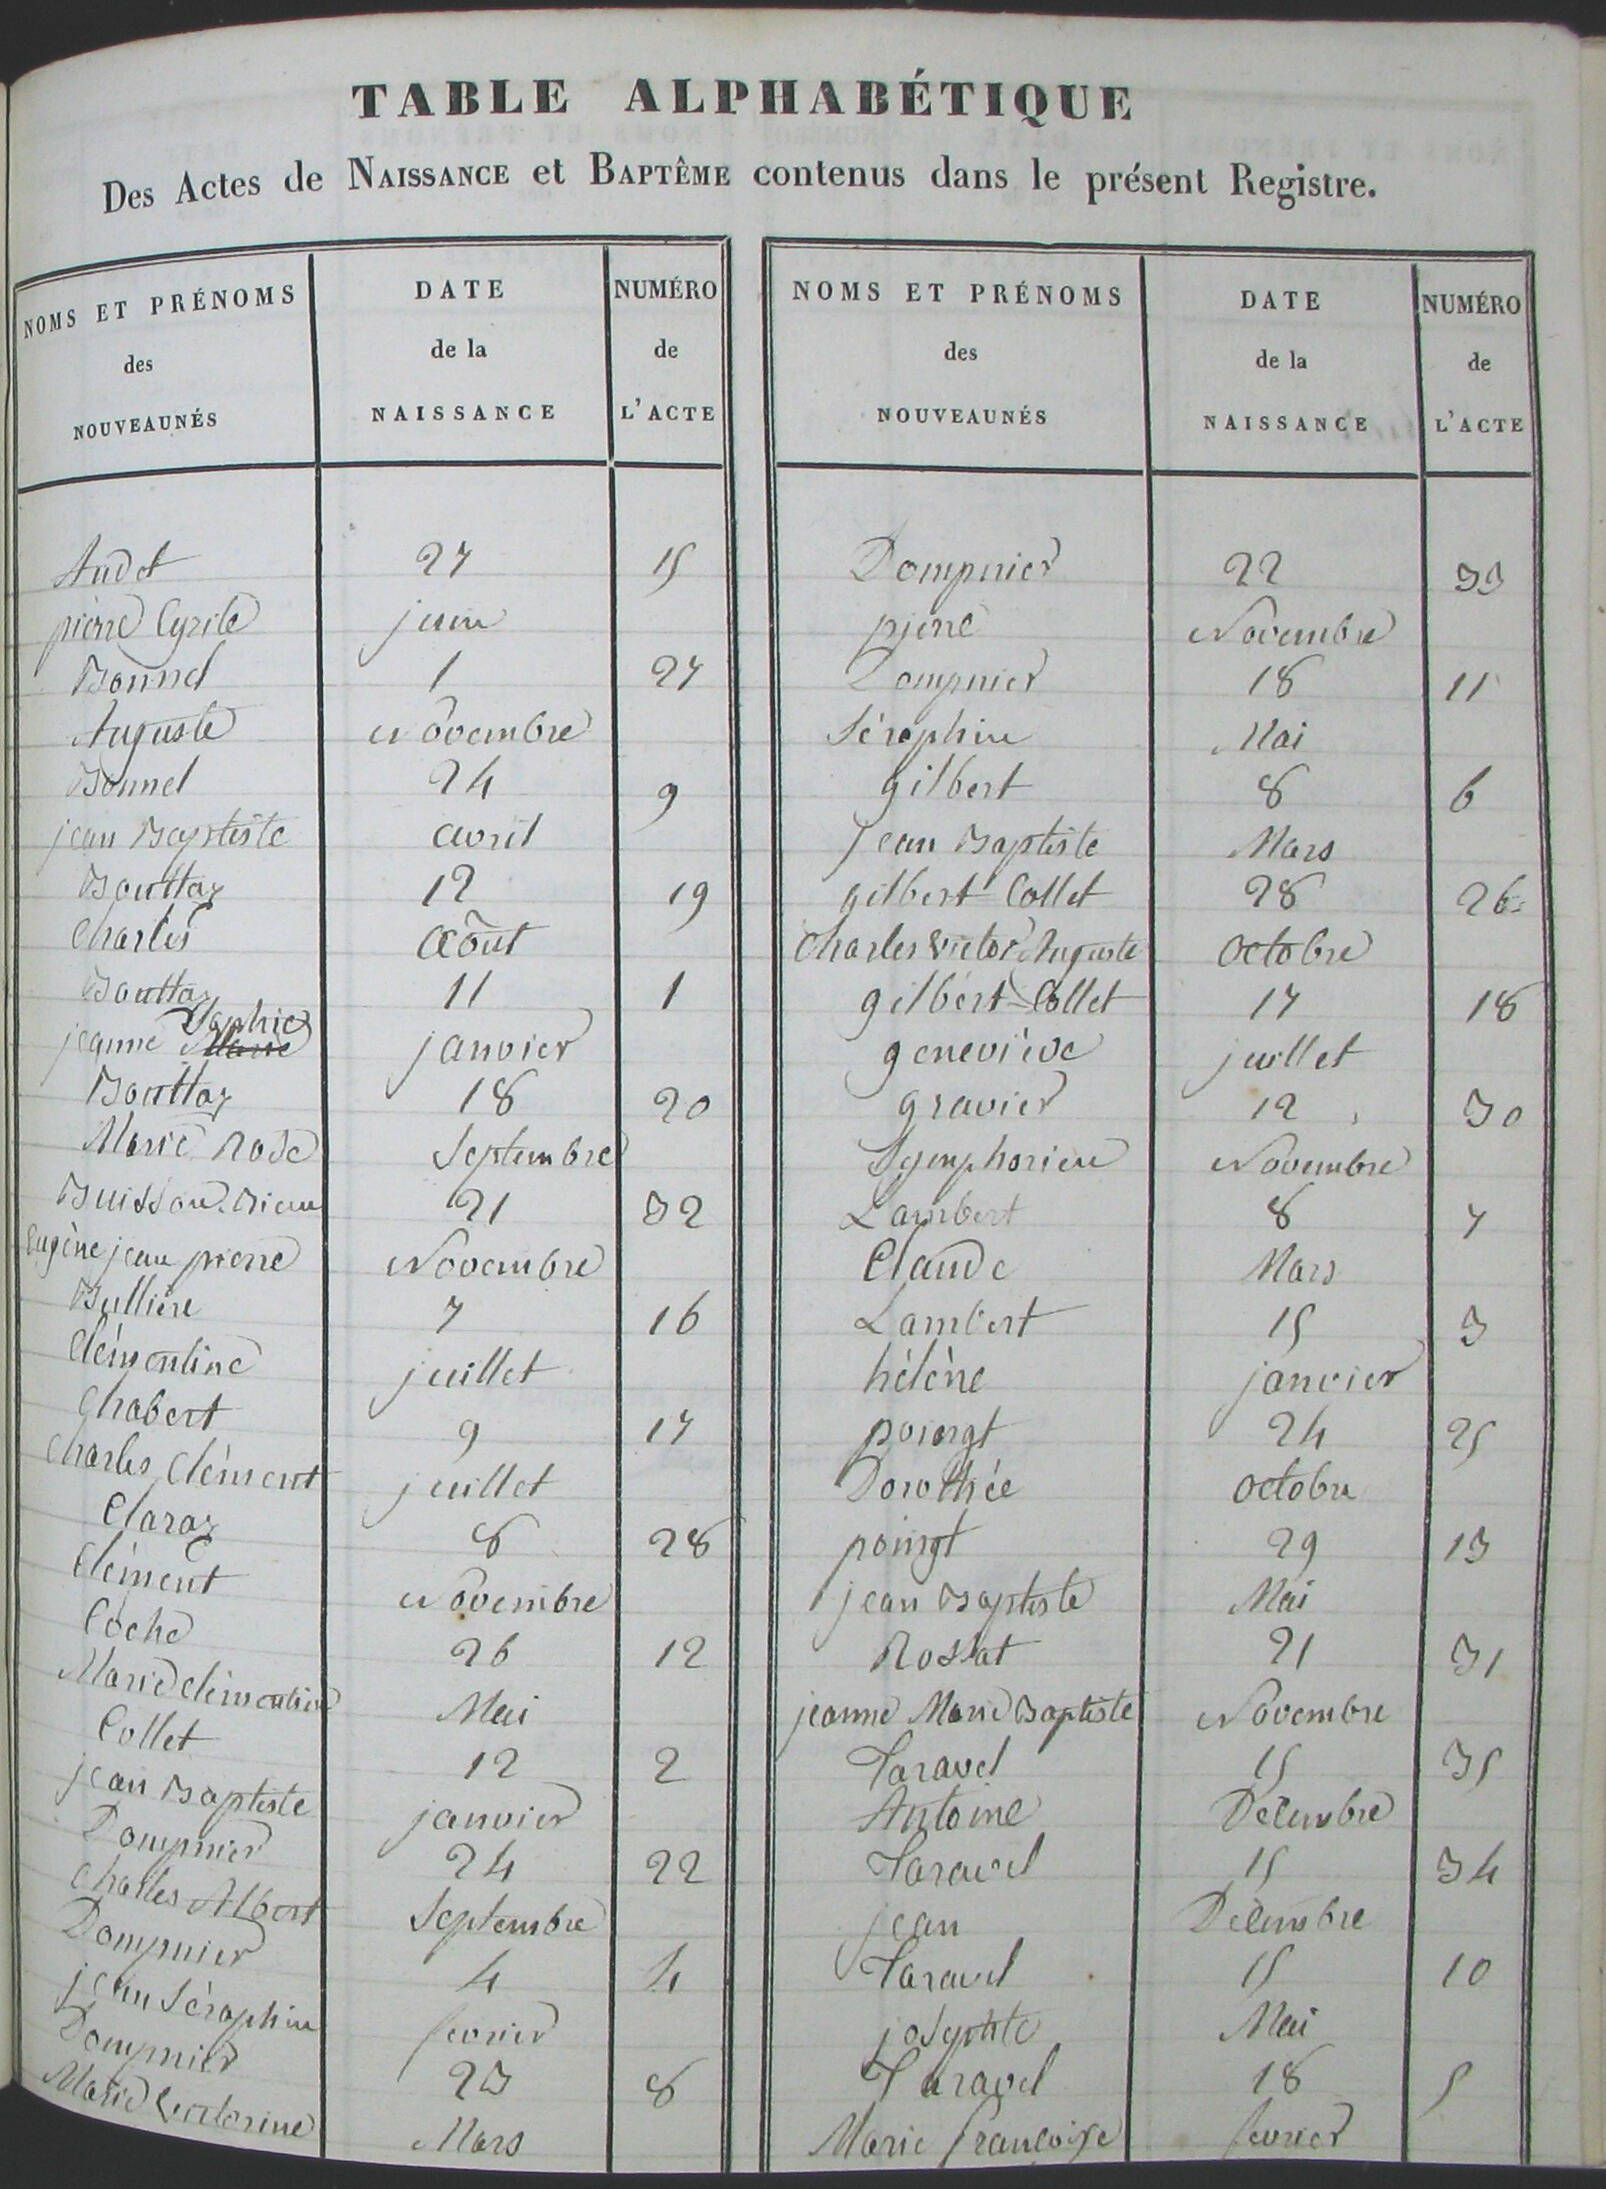 TABLE ALPHABÉTIQUE
Des Actes de NAISSANCE et BAPTÊME contenus dans le présent Registre.
NOMS ET PRÉNOMS des NOUVEAUNÉS
DATE de la NAISSANCE
NUMÉRO de L'ACTE
Audet 27 15
pierre Cyrile juin
Bonnel 1 27
Auguste Novembre
Bonnel 24 9
jean Baptiste avril
Bouttaz 12 19
Charles Août
Bouttaz 11 1
Sophie
jeanne Marie janvier
Bouttaz 18 20
Marie Rose Septembre
Buisson 21 32
Eugène jean pierre Novembre
Bullière 7 16
Clémentine juillet
Chabert 9 17
Charles Clément juillet
Claraz 8 28
Clément Novembre
Coche 26 12
Marie Clémentine Mai
Collet 12 2
jean Baptiste janvier
Dompnier 24 22
Charles Albert Septembre
Dompnier 4 4
jean Séraphin fevrier
Dompnier 23 8
Marie Mars
NOMS ET PRÉNOMS des NOUVEAUNÉS
DATE de la NAISSANCE
NUMÉRO de L'ACTE
Dompnier 22 33
pierre Novembre
Dompnier 18 11
Séraphin Mai
gilbert 8 6
jean Baptiste Mars
gilbert Collet 28 26
Charles Victor Auguste Octobre
gilbert-Collet 17 18
geneviève juillet
gravier 12 30
Symphorien Novembre
Lambert 8 7
Claude Mars
Lambert 15 3
hélène janvier
poingt 24 25
Dorothée Octobre
poingt 29 13
jean Baptiste Mai
Rossat 21 31
jeanne Marie Baptiste Novembre
Taravel 15 35
Antoine Décembre
Taravel 15 34
jean Décembre
Taravel 15 10
josephte Mai
Taravel 18 5
Marie françoise fevrier